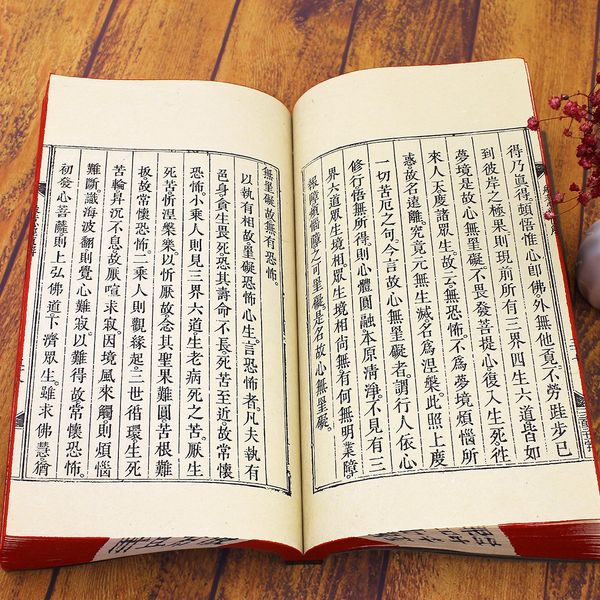 得乃真得。頓悟惟心卽佛。外無他覓。不勞跬步。已
到彼岸之極果。則現前所有三界四生六道。皆如
夢境。是故心無罣礙。不畏發菩提心。復入生死。徃
來人天。度諸眾生。故云無恐怖。不爲夢境煩惱所
惑。故名遠離。究竟元無生滅。名爲涅槃。此照上度
一切苦厄之句。今言故心無罣礙者。謂行人依心
修行。悟無所得。則心體圓融。本原清淨。不見有三
界六道眾生境相。眾生境相尚無。有何無明業障。
報障煩惱障之可罣礙。是名故心無罣礙。
無罣礙故。無有恐怖。
以執有相。故有罣礙。恐怖心生。言恐怖者。凡夫執有
色身。貪生畏死。恐其壽命不長。死苦至近。故常懷
恐怖。小乘人則見三界六道生老病死之苦。厭生
死苦。忻涅槃樂。以忻厭故。念其聖果難圓。苦根難
拔。故常懷恐怖。二乘人則觀緣起。三世循環。生死
苦輪。昇沉不息。故厭喧求寂。因境風來觸。則煩惱
難斷。識海波翻。則覺心難寂。以難得故。常懷恐怖。
初發心菩薩。則上弘佛道。下濟眾生。雖求佛慧。猶